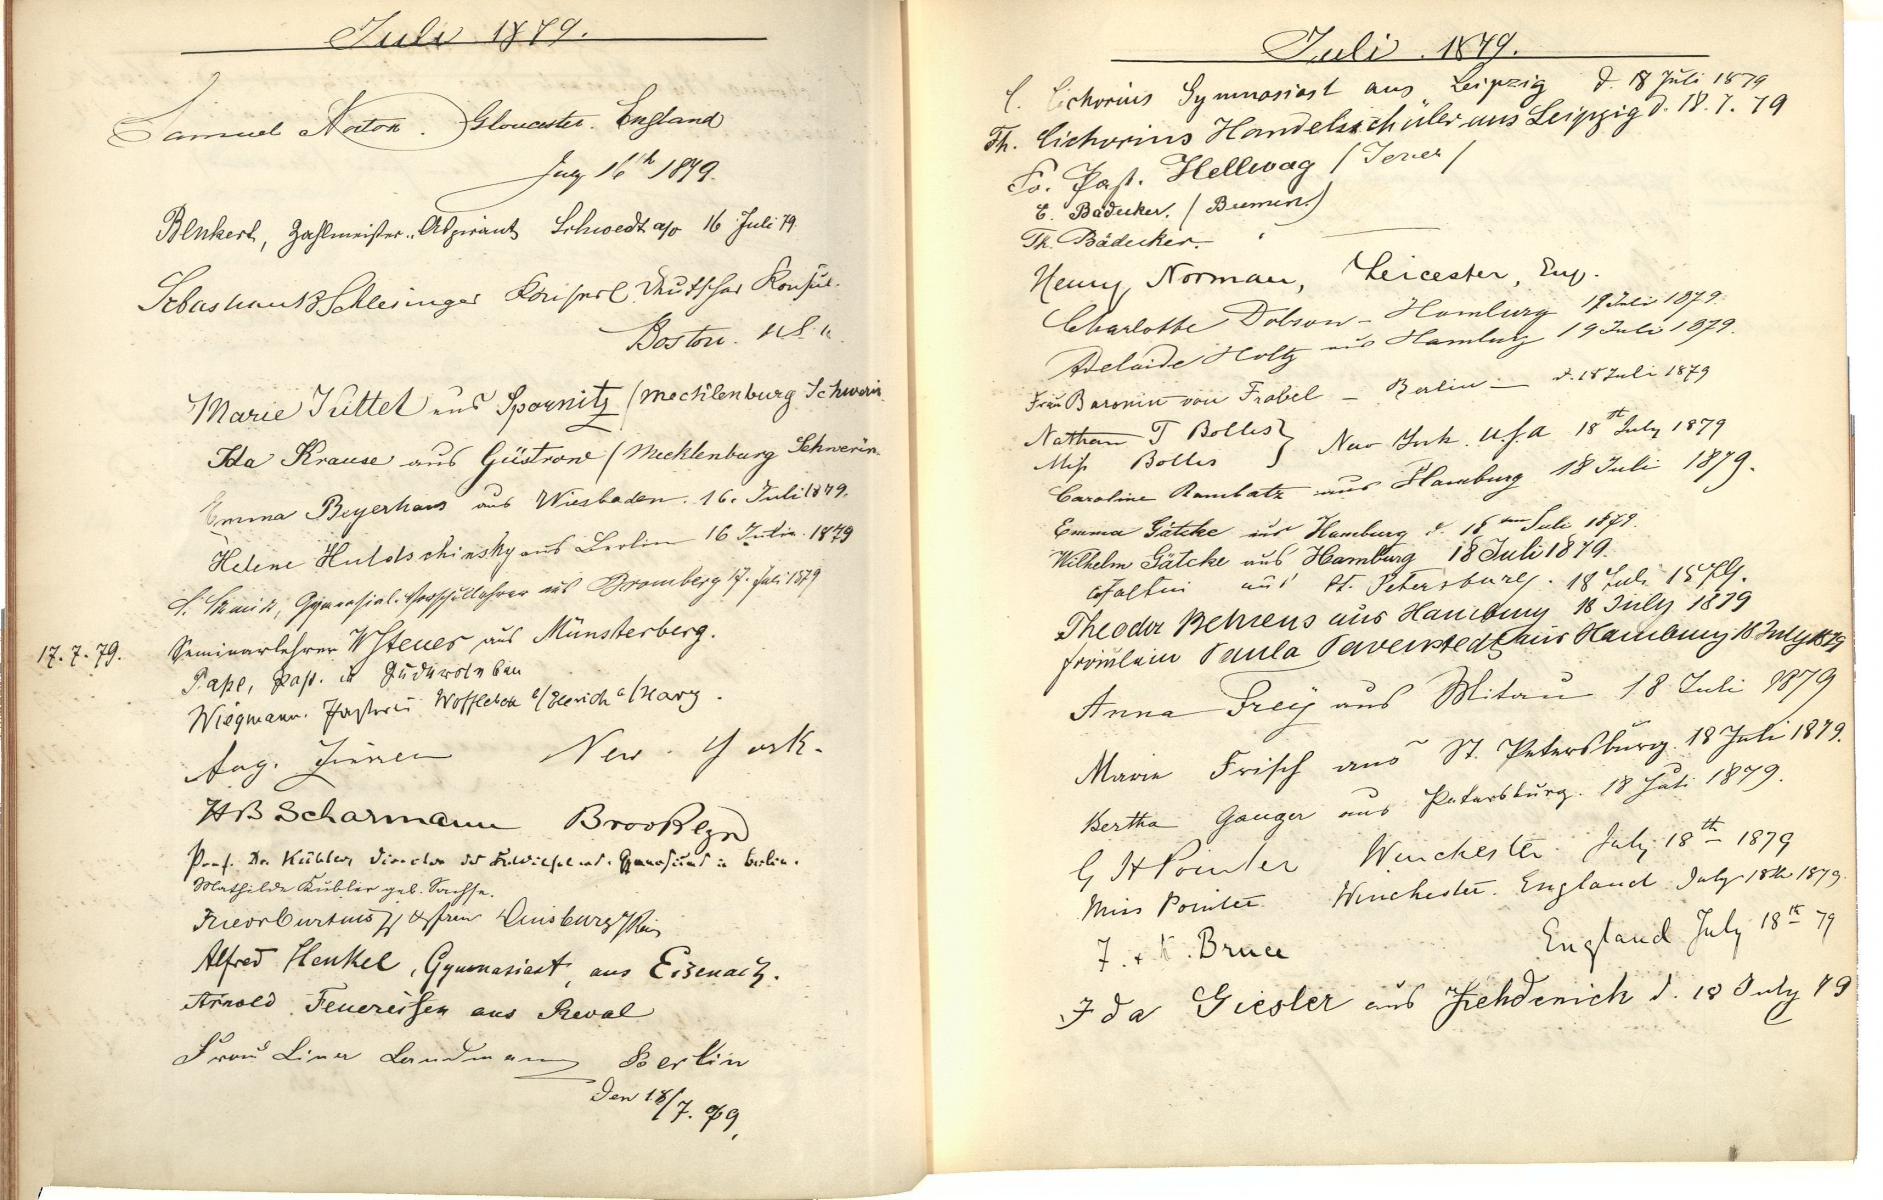 Juli 1879.
Samuel Norton. Gloucester. England
July 16th 1879.
Blnkert, Zahlmeister-Aspirant Schwedt a/o 16 Juli 79
Sebastian B Schlesinger Kaiserl. Deutscher Konsul.
Boston. U.S.A.
Marie Küttel aus Spornitz (Mecklenburg Schwerin
Ida Krause aus Güstrow (Mecklenburg Schwerin.
Emma Beyerhaus aus Wiesbaden. 16. Juli 1879.
Helene Huldschinsky aus Berlin 16 Juli. 1879
Gymnasial-Vorschullehrer aus Bromberg 17. Juli 1879
17.7.79. Seminarlehrer W Steuer aus Münsterberg.
Pape, Past. in
Wiegmann. Harz.
Aug. New-York.
HB Scharmann Brooklyn
Prof. Dr. Kübler Director des Gymnasiums in Berlin.
Mathilde Kübler geb. Sachse.
Duisburg
Alfred Henkel, Gymnasiast, aus Eisenach.
Arnold Feuereisen aus Reval
Frau Lina Landmann Berlin
den 18/7. 79.
Juli. 1879.
C. Cichorius Gymnasiast aus Leipzig d. 18 Juli 1879
Th. Cichorius Handelsschüler aus Leipzig d. 18.7.79
Fr. Past. Hellwag (Jever)
E. Bädecker. (Bremen.)
Th. Bädecker.
Henry Norman, Leicester, Eng.
Charlotte Dobson - Hamburg 19 Juli 1879.
Adelaide Holtz aus Hamburg 19 Juli 1879.
Frau Baronin von Frabel - Berlin - d. 18 Juli 1879
Nathan T Bolles } New York. U.S.A 18th July 1879
Miss Bolles
Caroline Rambatz aus Hamburg 18 Juli 1879.
Emma Gätcke aus Hamburg d. 18ten Juli 1879.
Wilhelm Gätcke aus Hamburg 18 Juli 1879.
aus St. Petersburg. 18 Juli 1879.
Theodor Behrens aus Hamburg 18 July 1879
Fräulein Paula Pavenstedt aus Hamburg 18 July 1879
Anna Frey aus Mitau 18 Juli 1879
Marie Frisch aus St. Petersburg. 18 Juli 1879.
Bertha Ganger aus Petersburg. 18 Juli 1879.
G H Pointer Winchester. July 18th 1879
Miss Pointer Winchester. England July 18th 1879.
F. + K. Bruce England July 18th 79
Ida Giesler aus Zehdenick d. 18 July 79